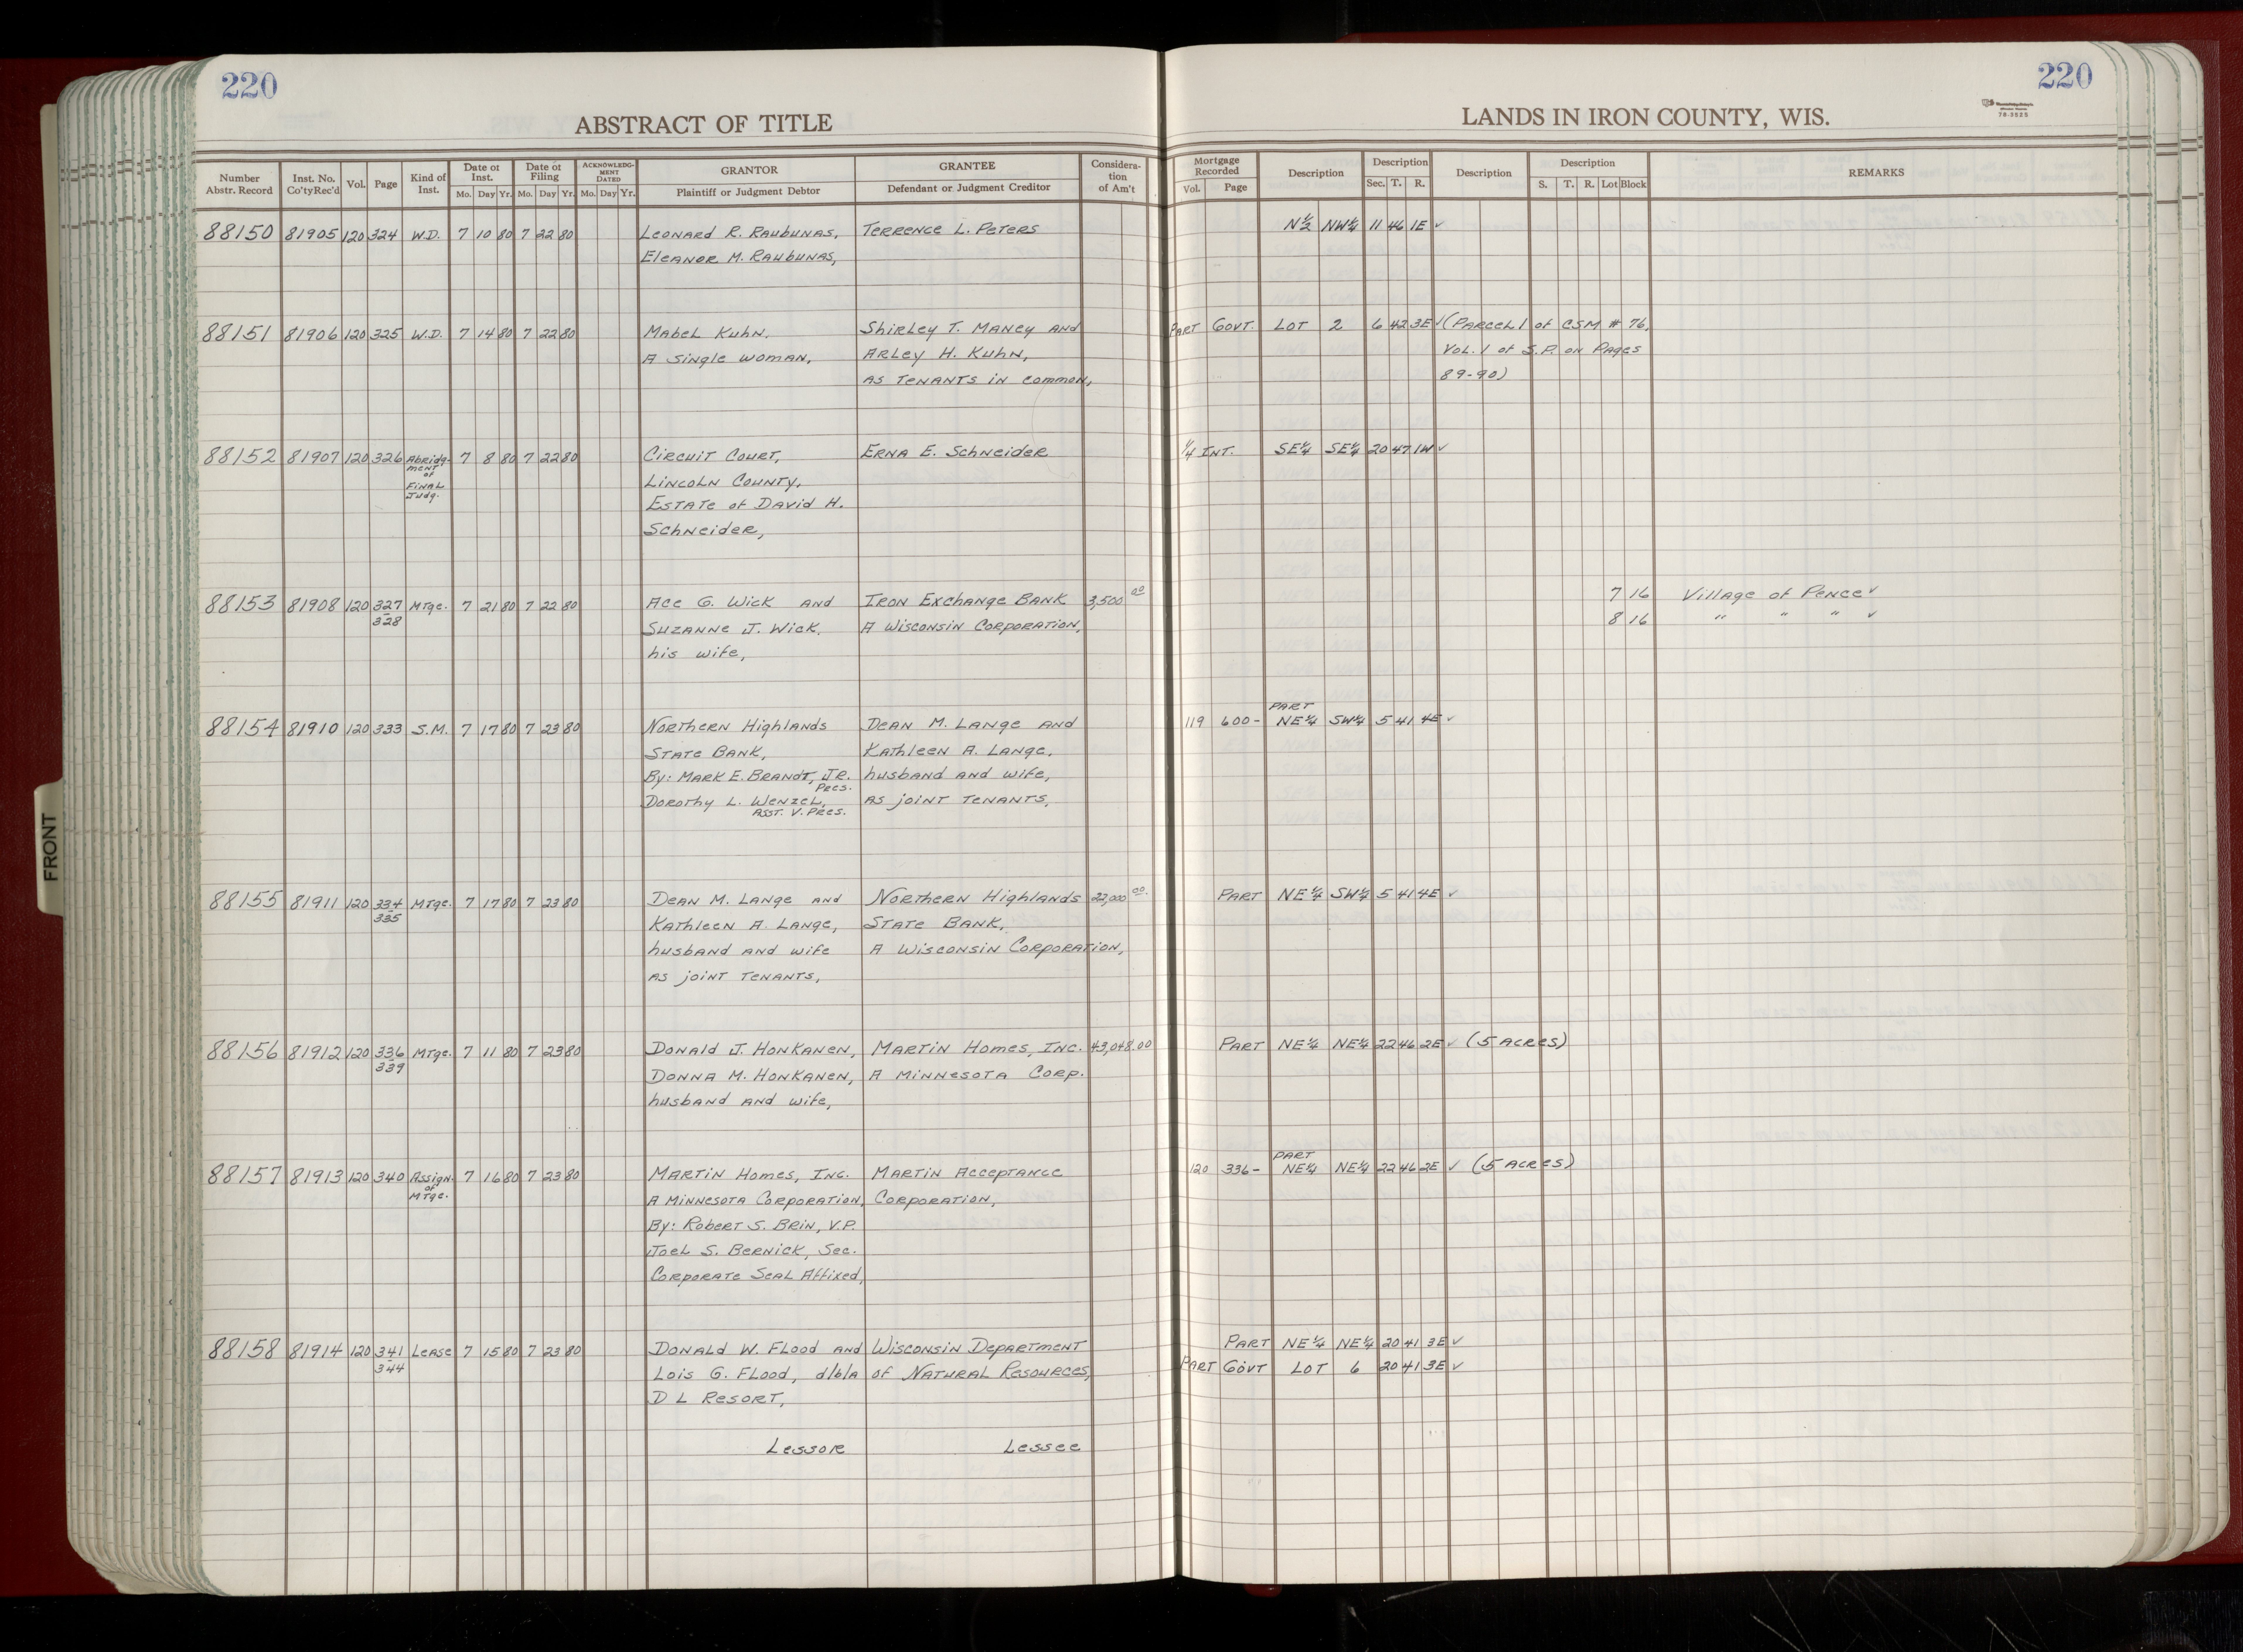 220
220
ABSTRACT OF TITLE
LANDS IN IRON COUNTY, WIS.
78-3525
Number Abstr. Record | Inst. No. Co'ty Rec'd | Vol. | Page | Kind of Inst. | Date of Inst. Mo. Day Yr. | Date of Filing Mo. Day Yr. | ACKNOWLEDGMENT DATED Mo. Day Yr. | GRANTOR Plaintiff or Judgment Debtor | GRANTEE Defendant or Judgment Creditor | Consideration of Am't | Mortgage Recorded Vol. Page | Description | Description Sec. T. R. | Description | Description S. T. R. Lot Block | REMARKS
88150 81905 120 324 W.D. 7 10 80 7 22 80 Leonard R. Raubunas, Terrence L. Peters N½ NW¼ 11 46 1E ✓
Eleanor M. Raubunas,
88151 81906 120 325 W.D. 7 14 80 7 22 80 Mabel Kuhn, Shirley T. Maney and Part Govt. Lot 2 6 42 3E ✓ (Parcel 1 of CSM # 76,
A single woman, Arley H. Kuhn, Vol. 1 of S.P. on Pages
as tenants in common, 89-90)
88152 81907 120 326 Abridg- 7 8 80 7 22 80 Circuit Court, Erna E. Schneider ¼ Int. SE¼ SE¼ 20 47 1W ✓
ment of Final Judg. Lincoln County,
Estate of David H.
Schneider,
88153 81908 120 327 Mtge. 7 21 80 7 22 80 Ace G. Wick and Iron Exchange Bank 3,500 00 7 16 Village of Pence ✓
328 Suzanne J. Wick, A Wisconsin Corporation, 8 16 " " " ✓
his wife,
88154 81910 120 333 S.M. 7 17 80 7 23 80 Northern Highlands Dean M. Lange and 119 600- Part NE¼ SW¼ 5 41 4E ✓
State Bank, Kathleen A. Lange,
By: Mark E. Brandt, Jr. Pres. husband and wife,
Dorothy L. Wenzel, Asst. V. Pres. as joint tenants,
88155 81911 120 334 Mtge. 7 17 80 7 23 80 Dean M. Lange and Northern Highlands 22,000 00. Part NE¼ SW¼ 5 41 4E ✓
335 Kathleen A. Lange, State Bank,
husband and wife A Wisconsin Corporation,
as joint tenants,
88156 81912 120 336 Mtge. 7 11 80 7 23 80 Donald J. Honkanen, Martin Homes, Inc. 43,048.00 Part NE¼ NE¼ 22 46 2E ✓ (5 acres)
339 Donna M. Honkanen, A Minnesota Corp.
husband and wife,
88157 81913 120 340 Assign. of Mtge. 7 16 80 7 23 80 Martin Homes, Inc. Martin Acceptance 120 336- Part NE¼ NE¼ 22 46 2E ✓ (5 acres)
A Minnesota Corporation, Corporation,
By: Robert S. Brin, V.P.
Joel S. Bernick, Sec.
Corporate Seal Affixed,
88158 81914 120 341 Lease 7 15 80 7 23 80 Donald W. Flood and Wisconsin Department Part NE¼ NE¼ 20 41 3E ✓
344 Lois G. Flood, d/b/a of Natural Resources, Part Govt Lot 6 20 41 3E ✓
D L Resort,
Lessor Lessee
FRONT